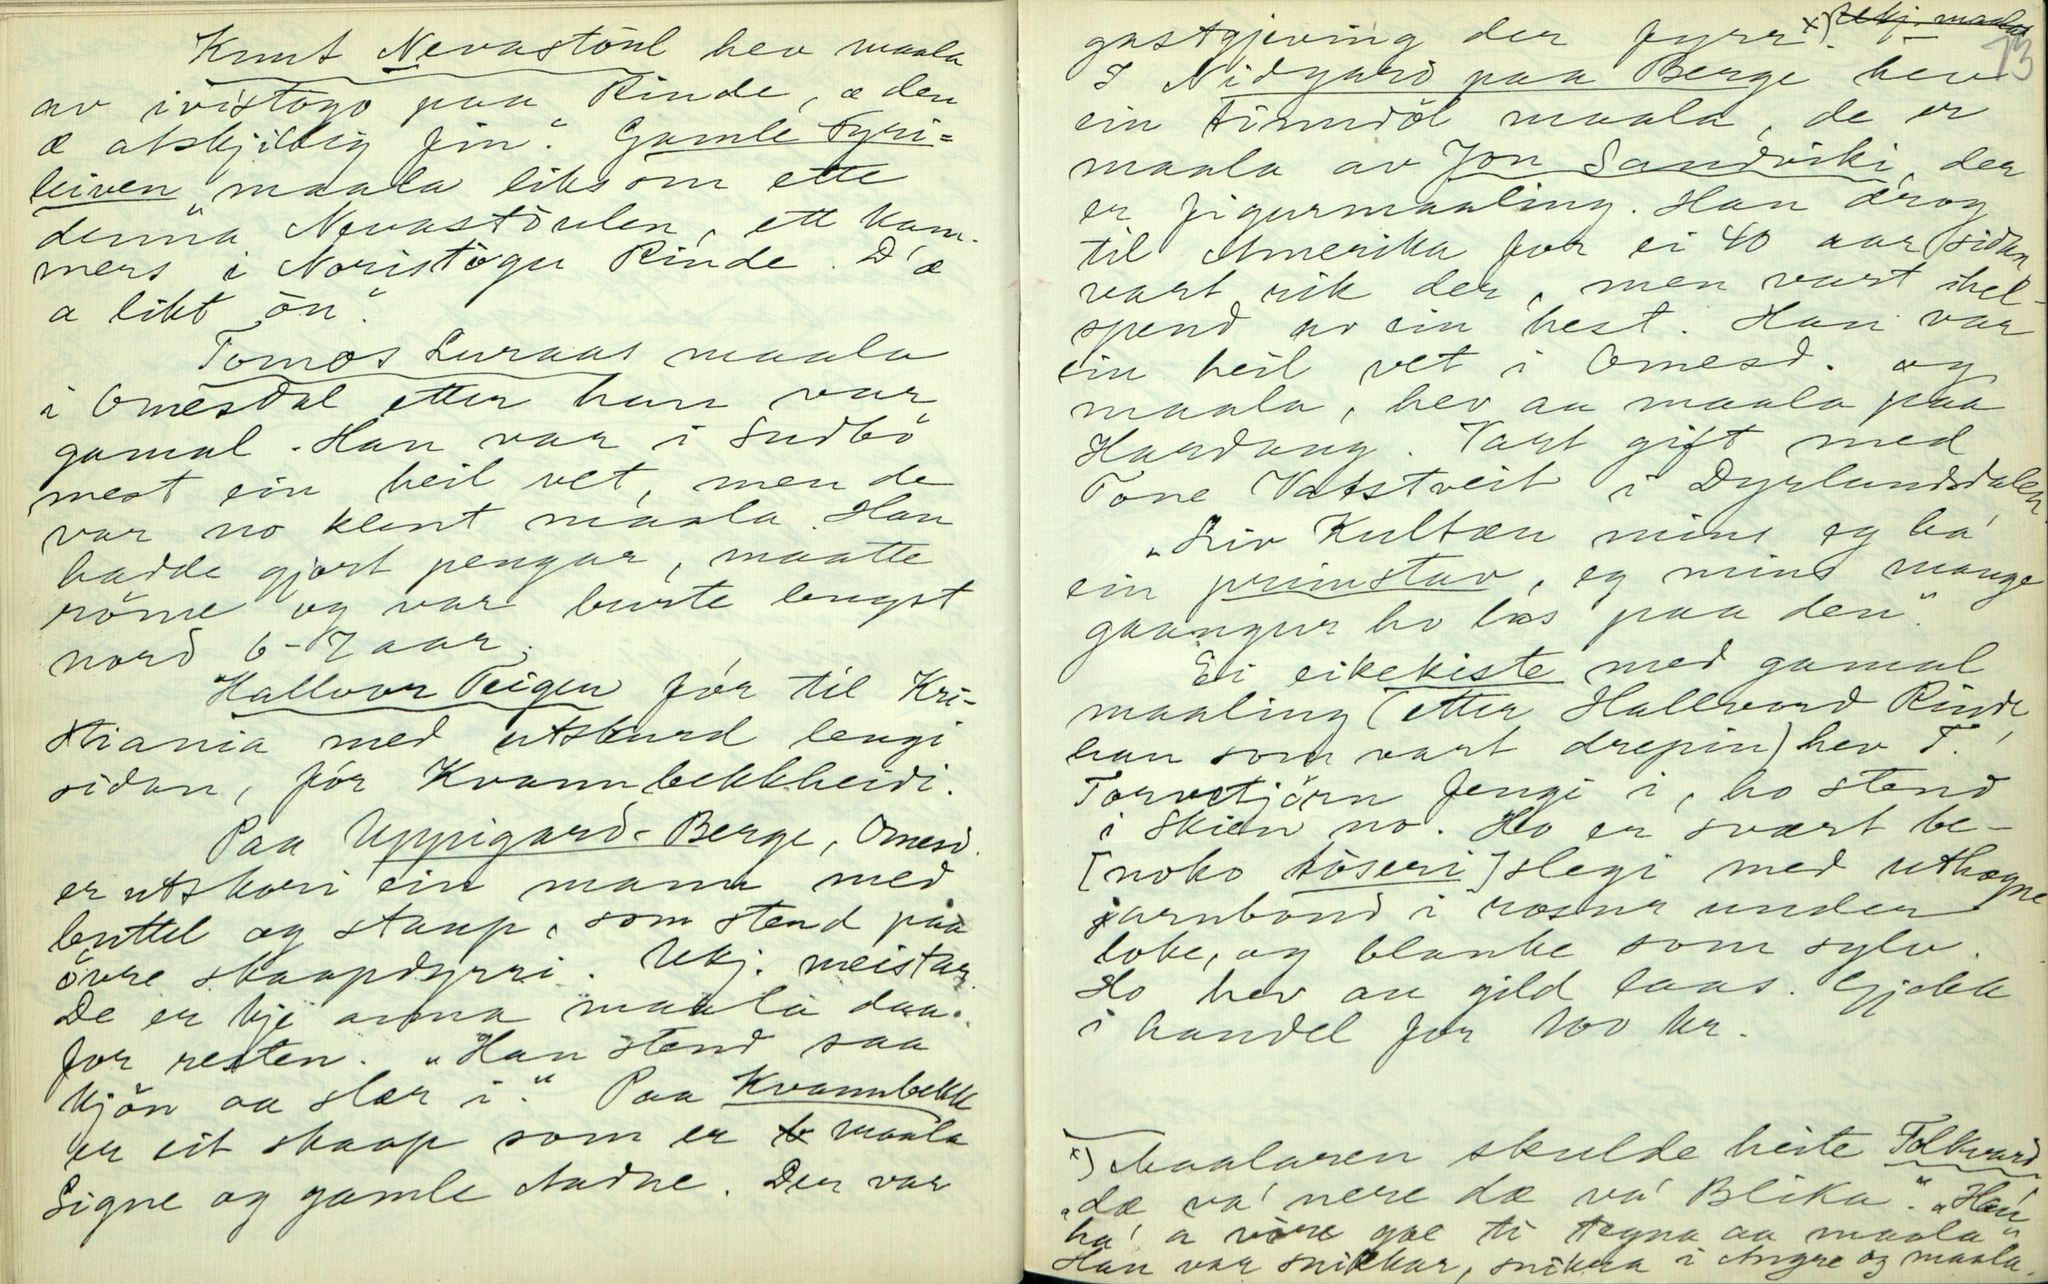 Knut Nevastöul hev maala
av ivistogo paa Rinde, "æ den
æ atskjillig fin". Gamle Tyri=
leiven "maala liksom ette
denna Nevastöulen, ett kam-
mers i Noristögu Rinde. D'æ
a likt ön".
Tomos Luraas maala
i Omesdal etter han var
gamal. Han var i Sudbö
mest ein heil vet, men de
var no klent maala. Han
hadde gjort pengar, maatte
röme og var burte lengst
nord 6-7 aar.
Hallvor Teigen fór til Kri-
stiania med utskurd lengi
sidan, fór Kvannbekkheidi.
Paa Uppigard-Berge, Omesd.
er utskori ein mann med
buttel og staup, som stend paa
övre skaapdyrri. Ukj. meistar.
De er kje anna maala daa.
for resten. "Han stend saa
kjön aa slær i." Paa Kvannbekk
er eit skaap som er maala
Signe og gamle Aadne. Der var
gastgjeving der fyrr x). Ukj. maalar
13
I Nidgard paa Berge hev
ein tinndöl maala, de er
maala av Jon Sandviki, der
er figurmaaling. Han drog
til Amerika for ei 40 aar sidan
vart rik der, men vart ihel-
spend av ein hest. Han var
ein heil vet i Omesd. og
maala, hev au maala paa
Hardang. Vart gift med
Tone Vatstveit i Dyrlandsdalen.
"Liv Kultæn mins eg ha'
ein primstav, eg mins mange
gaangur ho las paa den".
Ei eikekiste med gamal
maaling (etter Hallvord Rinde,
han som vart drepin) hev T.
Torvetjörn fengi i, ho stend
i Skien no. Ho er svært be-
[noko töseri] slegi med uthogne
jarnbönd i rosur under
loke, og blanke som sylv.
Ho hev au gild laas. Gjekk
i handel for 100 kr.
x) Maalaren skulde heite Folkvard
"dæ va' nere dæ va' Blika". "Han
ha' a vöre gæ ti tegna aa maala"
Han var snikkar, snikra i Angre og maala.